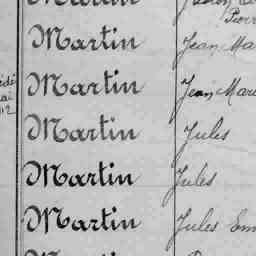 Martin
Martin Jean Ma
Martin Jean Mari
Martin Jules
Martin Jules
Martin Jules Em